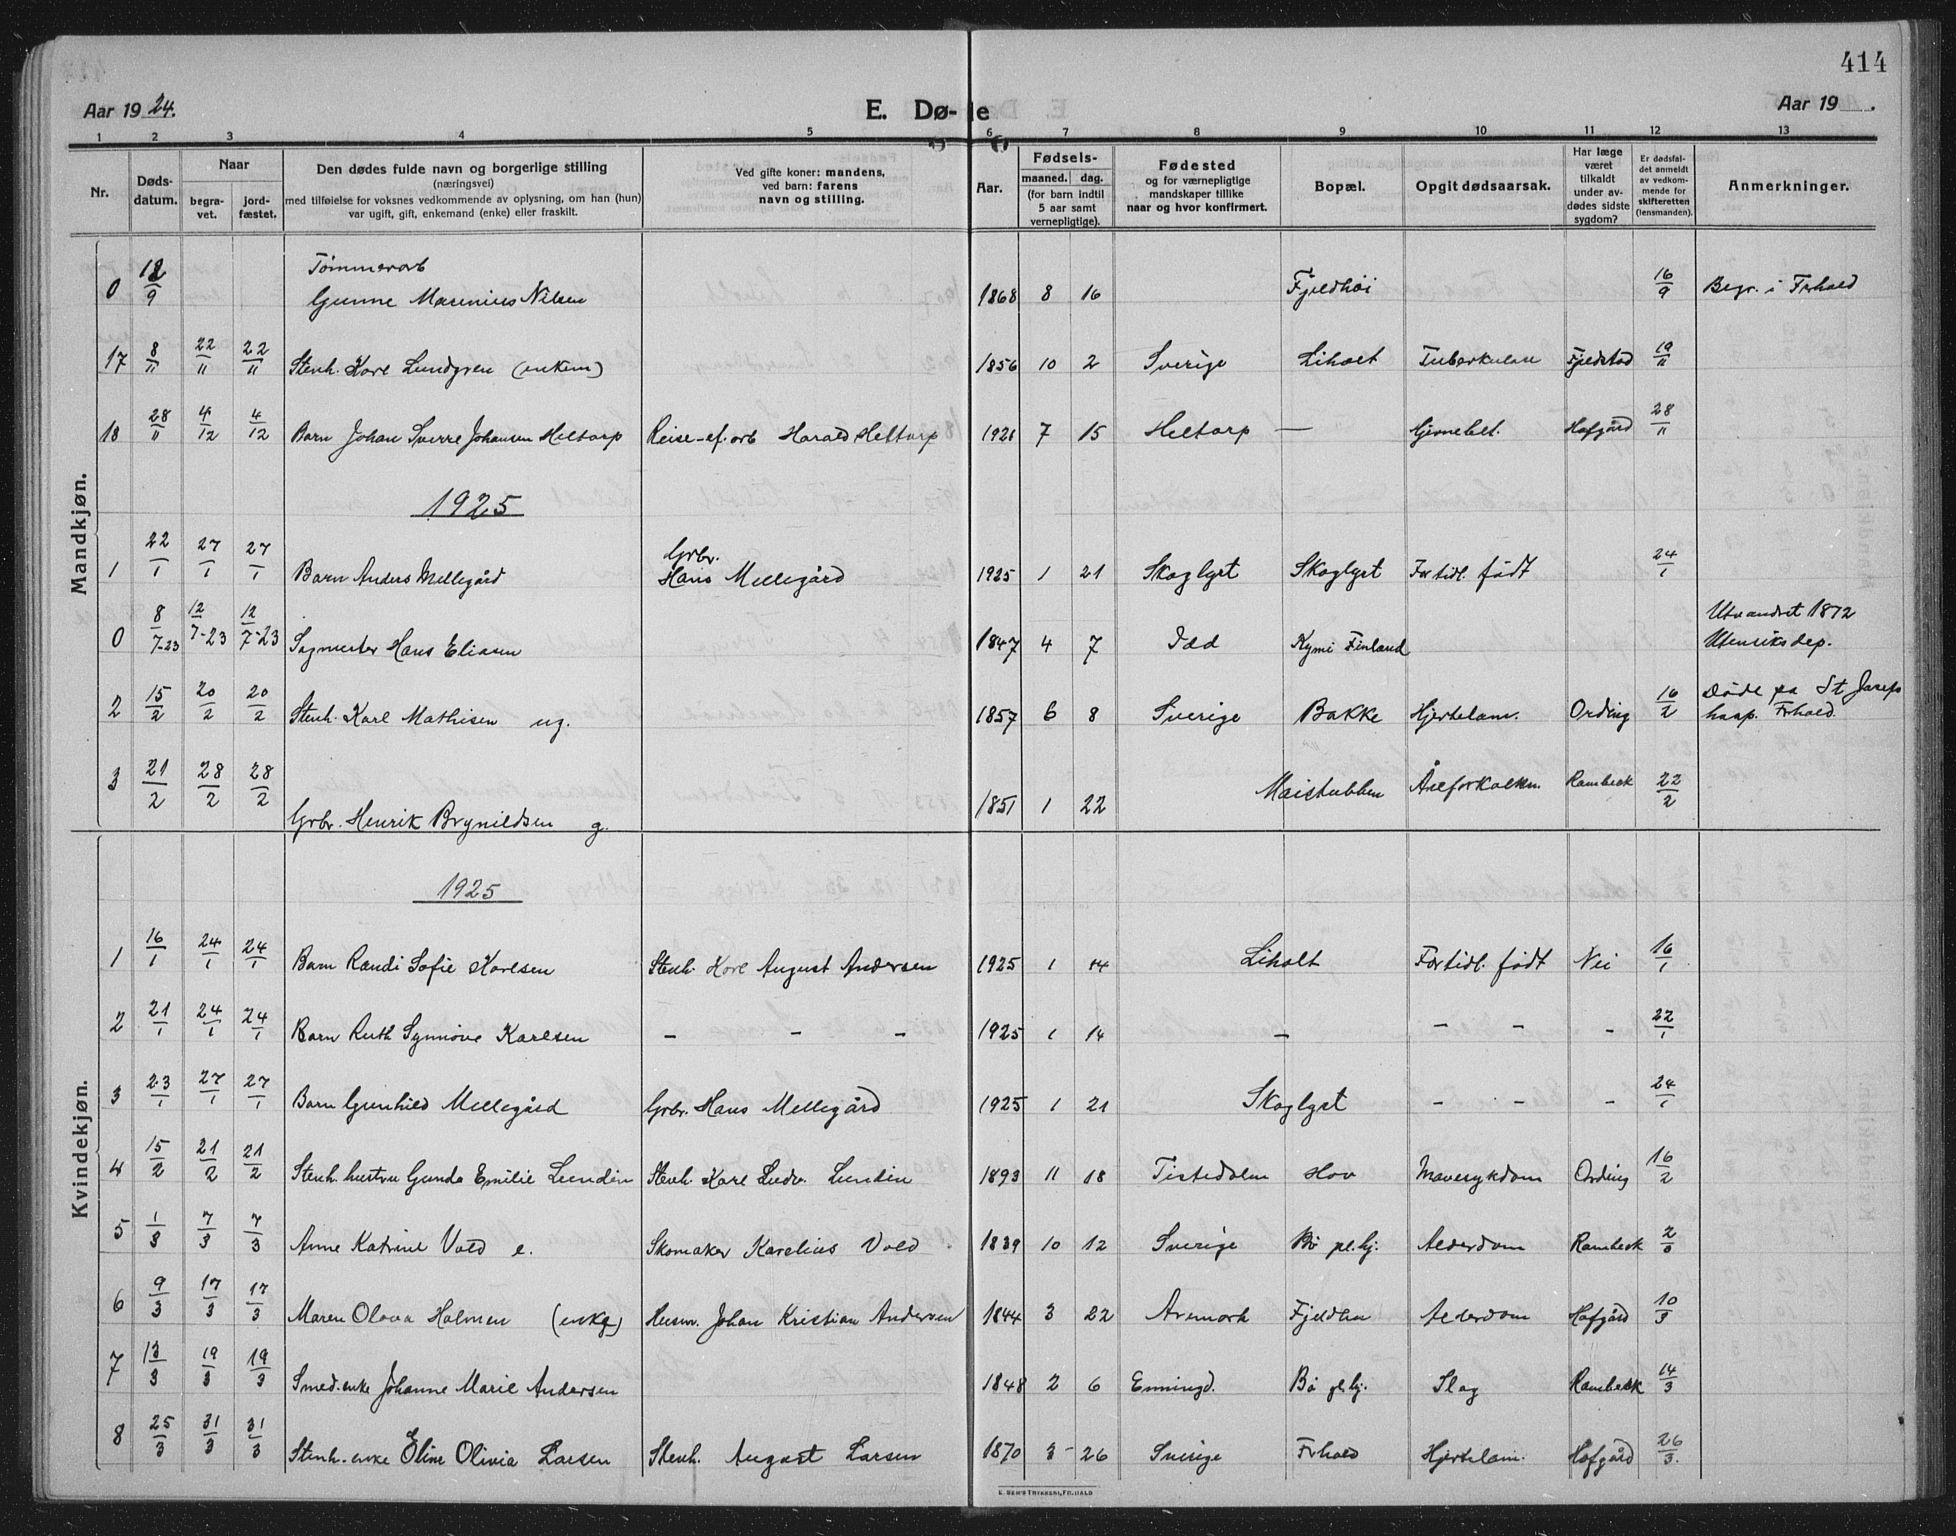 414
Aar 1924. E. Dø- de Aar 19 .
1 2 3 4 5 6 7 8 9 10 11 12 13
Nr. Døds-datum. Naar begra-vet. jord-fæstet. Den dødes fulde navn og borgerlige stilling (næringsvei) med tilføielse for voksnes vedkommende av oplysning, om han (hun) var ugift, gift, enkemand (enke) eller fraskilt. Ved gifte koner: mandens, ved barn: farens navn og stilling. Aar. Fødsels- maaned. dag. (for barn indtil 5 aar samt vernepligtige). Fødested og for værnepligtige mandskaper tillike naar og hvor konfirmert. Bopæl. Opgit dødsaarsak. Har læge været tilkaldt under av-dødes sidste sygdom? Er dødsfal-det anmeldt av vedkom-mende for skifteretten (lensmanden). Anmerkninger.
Mandkjøn.
0 12/9 Tømmerarb Gunne Marenius Nilsen 1868 8 16 Fjeldhøi 16/9 Begr. i Frhald
17 8/11 22/11 22/11 Stenh. Karl Lundgren (enkem) 1856 10 2 Sverige Liholt Tuberkulose Fjeldstad 19/11
18 28/11 4/12 4/12 Barn Johan Sverre Johansen Heltorp Reise-ef.arb Harald Heltorp 1921 7 15 Heltorp — Hjernebet. Hafgård 28/11
1925
1 22/1 27/1 27/1 Barn Anders Mellegård Grbr. Hans Mellegård 1925 1 21 Skoglyst Skoglyst For tidl. født 24/1
0 8/7-23 12/7-23 12/7-23 Sagmester Hans Eliasen 1847 4 7 Idd Kymi Finland Utvandret 1872 Utenriksdep.
2 15/2 20/2 20/2 Stenh. Karl Mathisen ug. 1857 6 8 Sverige Bakke Hjertelam. Ording 16/2 Døde pa St Josefs hosp. Frhald.
3 21/2 28/2 28/2 Grbr. Henrik Brynildsen g. 1851 1 22 Maistubben Åreforkalkn. Rambeck 22/2
Kvindekjøn.
1925
1 16/1 24/1 24/1 Barn Randi Sofie Karlsen Stenh. Karl August Andersen 1925 1 14 Liholt For tidl. født Nei 16/1
2 21/1 24/1 24/1 Barn Ruth Synnöve Karlsen – – – 1925 1 14 – – – – 22/1
3 23/1 27/1 27/1 Barn Gunhild Mellegård Grbr. Hans Mellegård 1925 1 21 Skoglyst – – – 24/1
4 15/2 21/2 21/2 Stenh. hustru Gunda Emilie Lundin Stenh. Karl Ludv. Lundin 1893 11 18 Tistedalen Hov Mavesykdom Ording 16/2
5 1/3 7/3 7/3 Anne Katrine Vold e. Skomaker Karelius Vold 1839 10 12 Sverige Bö pl.hj. Alderdom Rambeck 2/3
6 9/3 17/3 17/3 Maren Olava Holmen (enke) Husm. Johan Kristian Andersen 1844 3 22 Aremark Fjeldhøi Alderdom Hafgård 10/3
7 13/3 19/3 19/3 Smed.enke Johanne Marie Andersen 1848 2 6 Enningd. Bö pl.hj. Slag Rambeck 14/3
8 25/3 31/3 31/3 Stenh.-enke Eline Olivia Larsen Stenh. August Larsen 1870 3 26 Sverige Frhald Hjertelam. Hafgård 26/3.
E. SEM'S TRYKKERI, FR.HALD